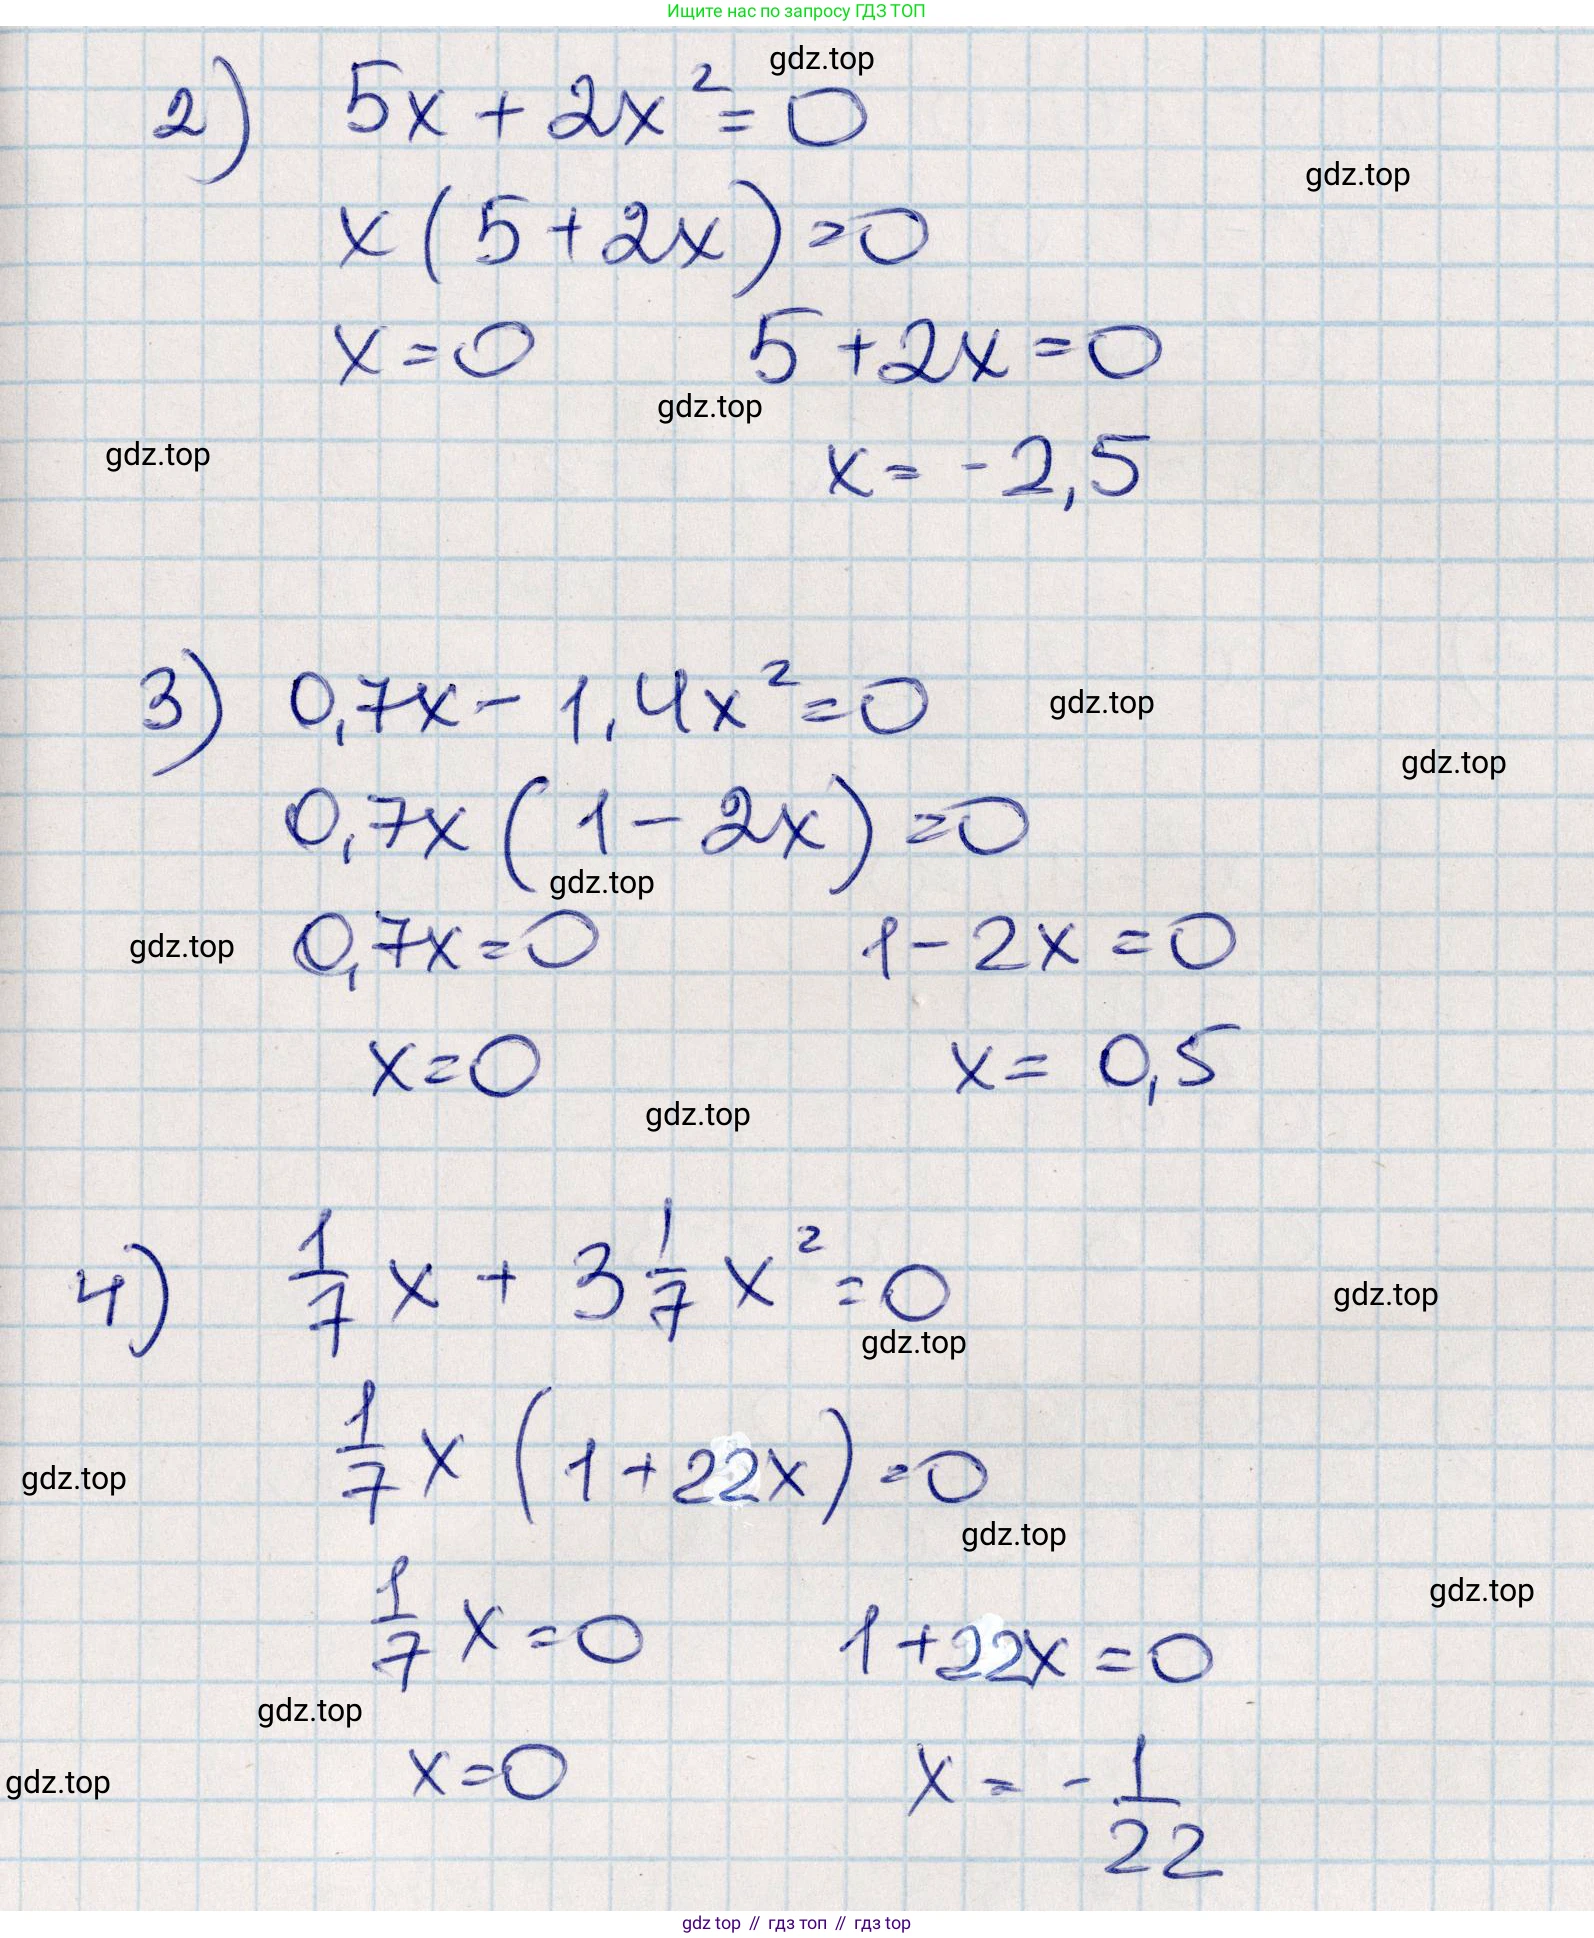 Ищите нас по запросу ГДЗ ТОП
gdz.top
2) 5x + 2x² = 0
gdz.top
x(5 + 2x) = 0
x = 0 5 + 2x = 0
gdz.top
gdz.top
x = -2,5
3) 0,7x - 1,4x² = 0
gdz.top
gdz.top
0,7x (1 - 2x) = 0
gdz.top
gdz.top
0,7x = 0 1 - 2x = 0
x = 0 x = 0,5
gdz.top
4) 1/7 x + 3 1/7 x² = 0
gdz.top
gdz.top
1/7 x (1 + 22x) = 0
gdz.top
gdz.top
gdz.top
1/7 x = 0 1 + 22x = 0
gdz.top
gdz.top
x = 0 x = - 1/22
gdz top // гдз топ // gdz top